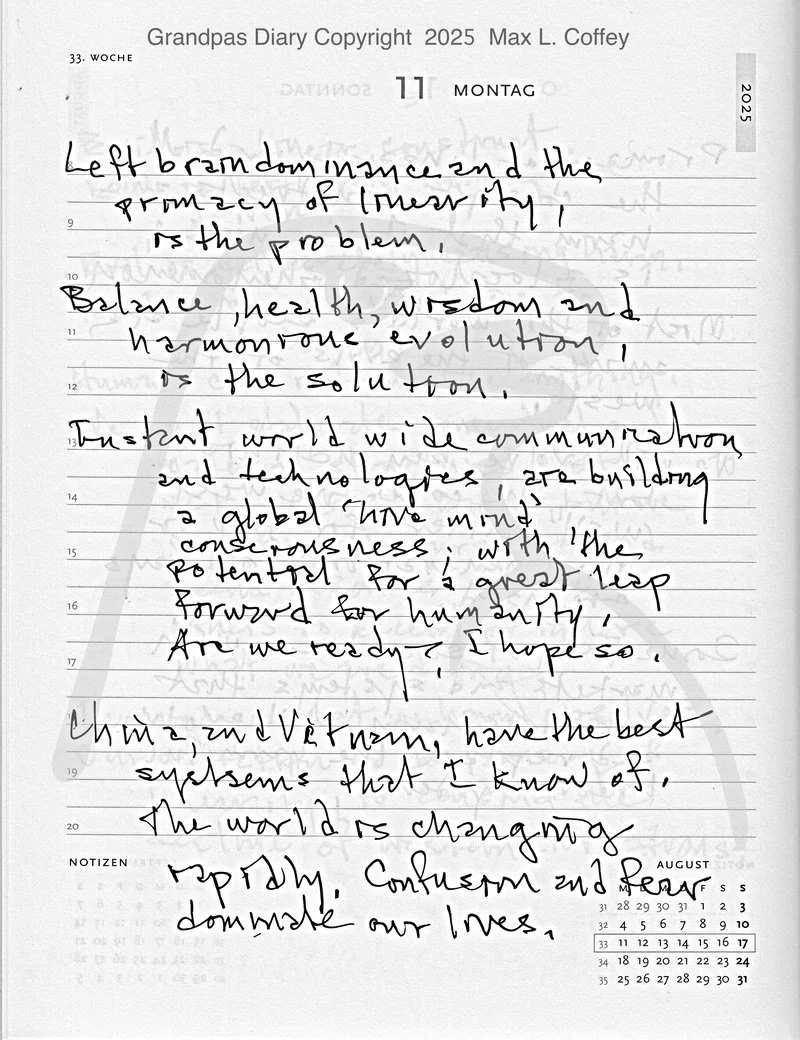 Grandpas Diary Copyright 2025 Max L. Coffey
33. WOCHE
11 MONTAG
2025
Left brain dominance and the
primacy of linearity,
is the problem.
Balance, health, wisdom and
harmonious evolution,
is the solution.
Instant world wide communication,
and technologies, are building
a global 'hive mind'
consciousness; with the
potential for a great leap
forward for humanity.
Are we ready? I hope so.
China, and Vietnam, have the best
systsems that I know of.
The world is changing
rapidly. Confusion and fear
dominate our lives.
8
9
10
11
12
13
14
15
16
17
19
20
NOTIZEN
AUGUST
M F S S
31 28 29 30 31 1 2 3
32 4 5 6 7 8 9 10
33 11 12 13 14 15 16 17
34 18 19 20 21 22 23 24
35 25 26 27 28 29 30 31